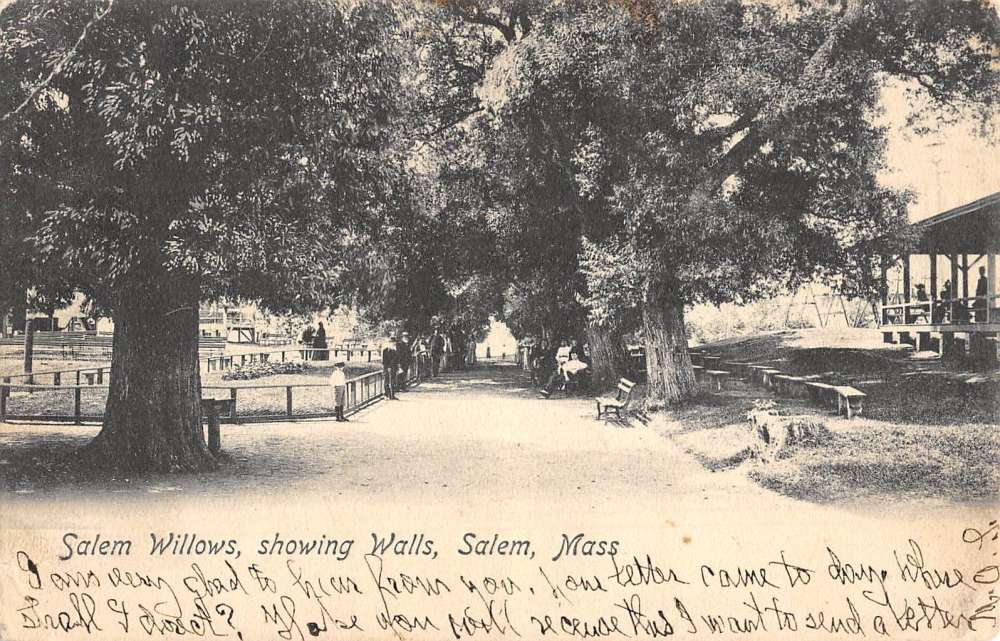 Salem Willows, showing Walls, Salem, Mass
I am very glad to hear from you, your letter came to day. Where
shall I direct it? Maybe you will receive this I want to send a letter